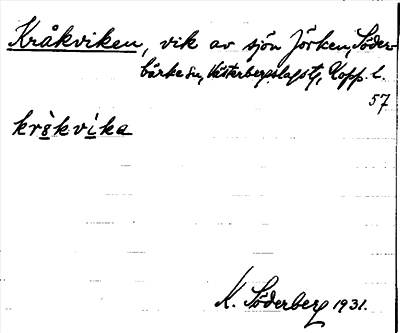 Kråkviken, vik av sjön Jörken, Söder-
bärke sn, Västerbergslags tg, Kopp. l.
57
kråkvika
K. Söderberg 1931.